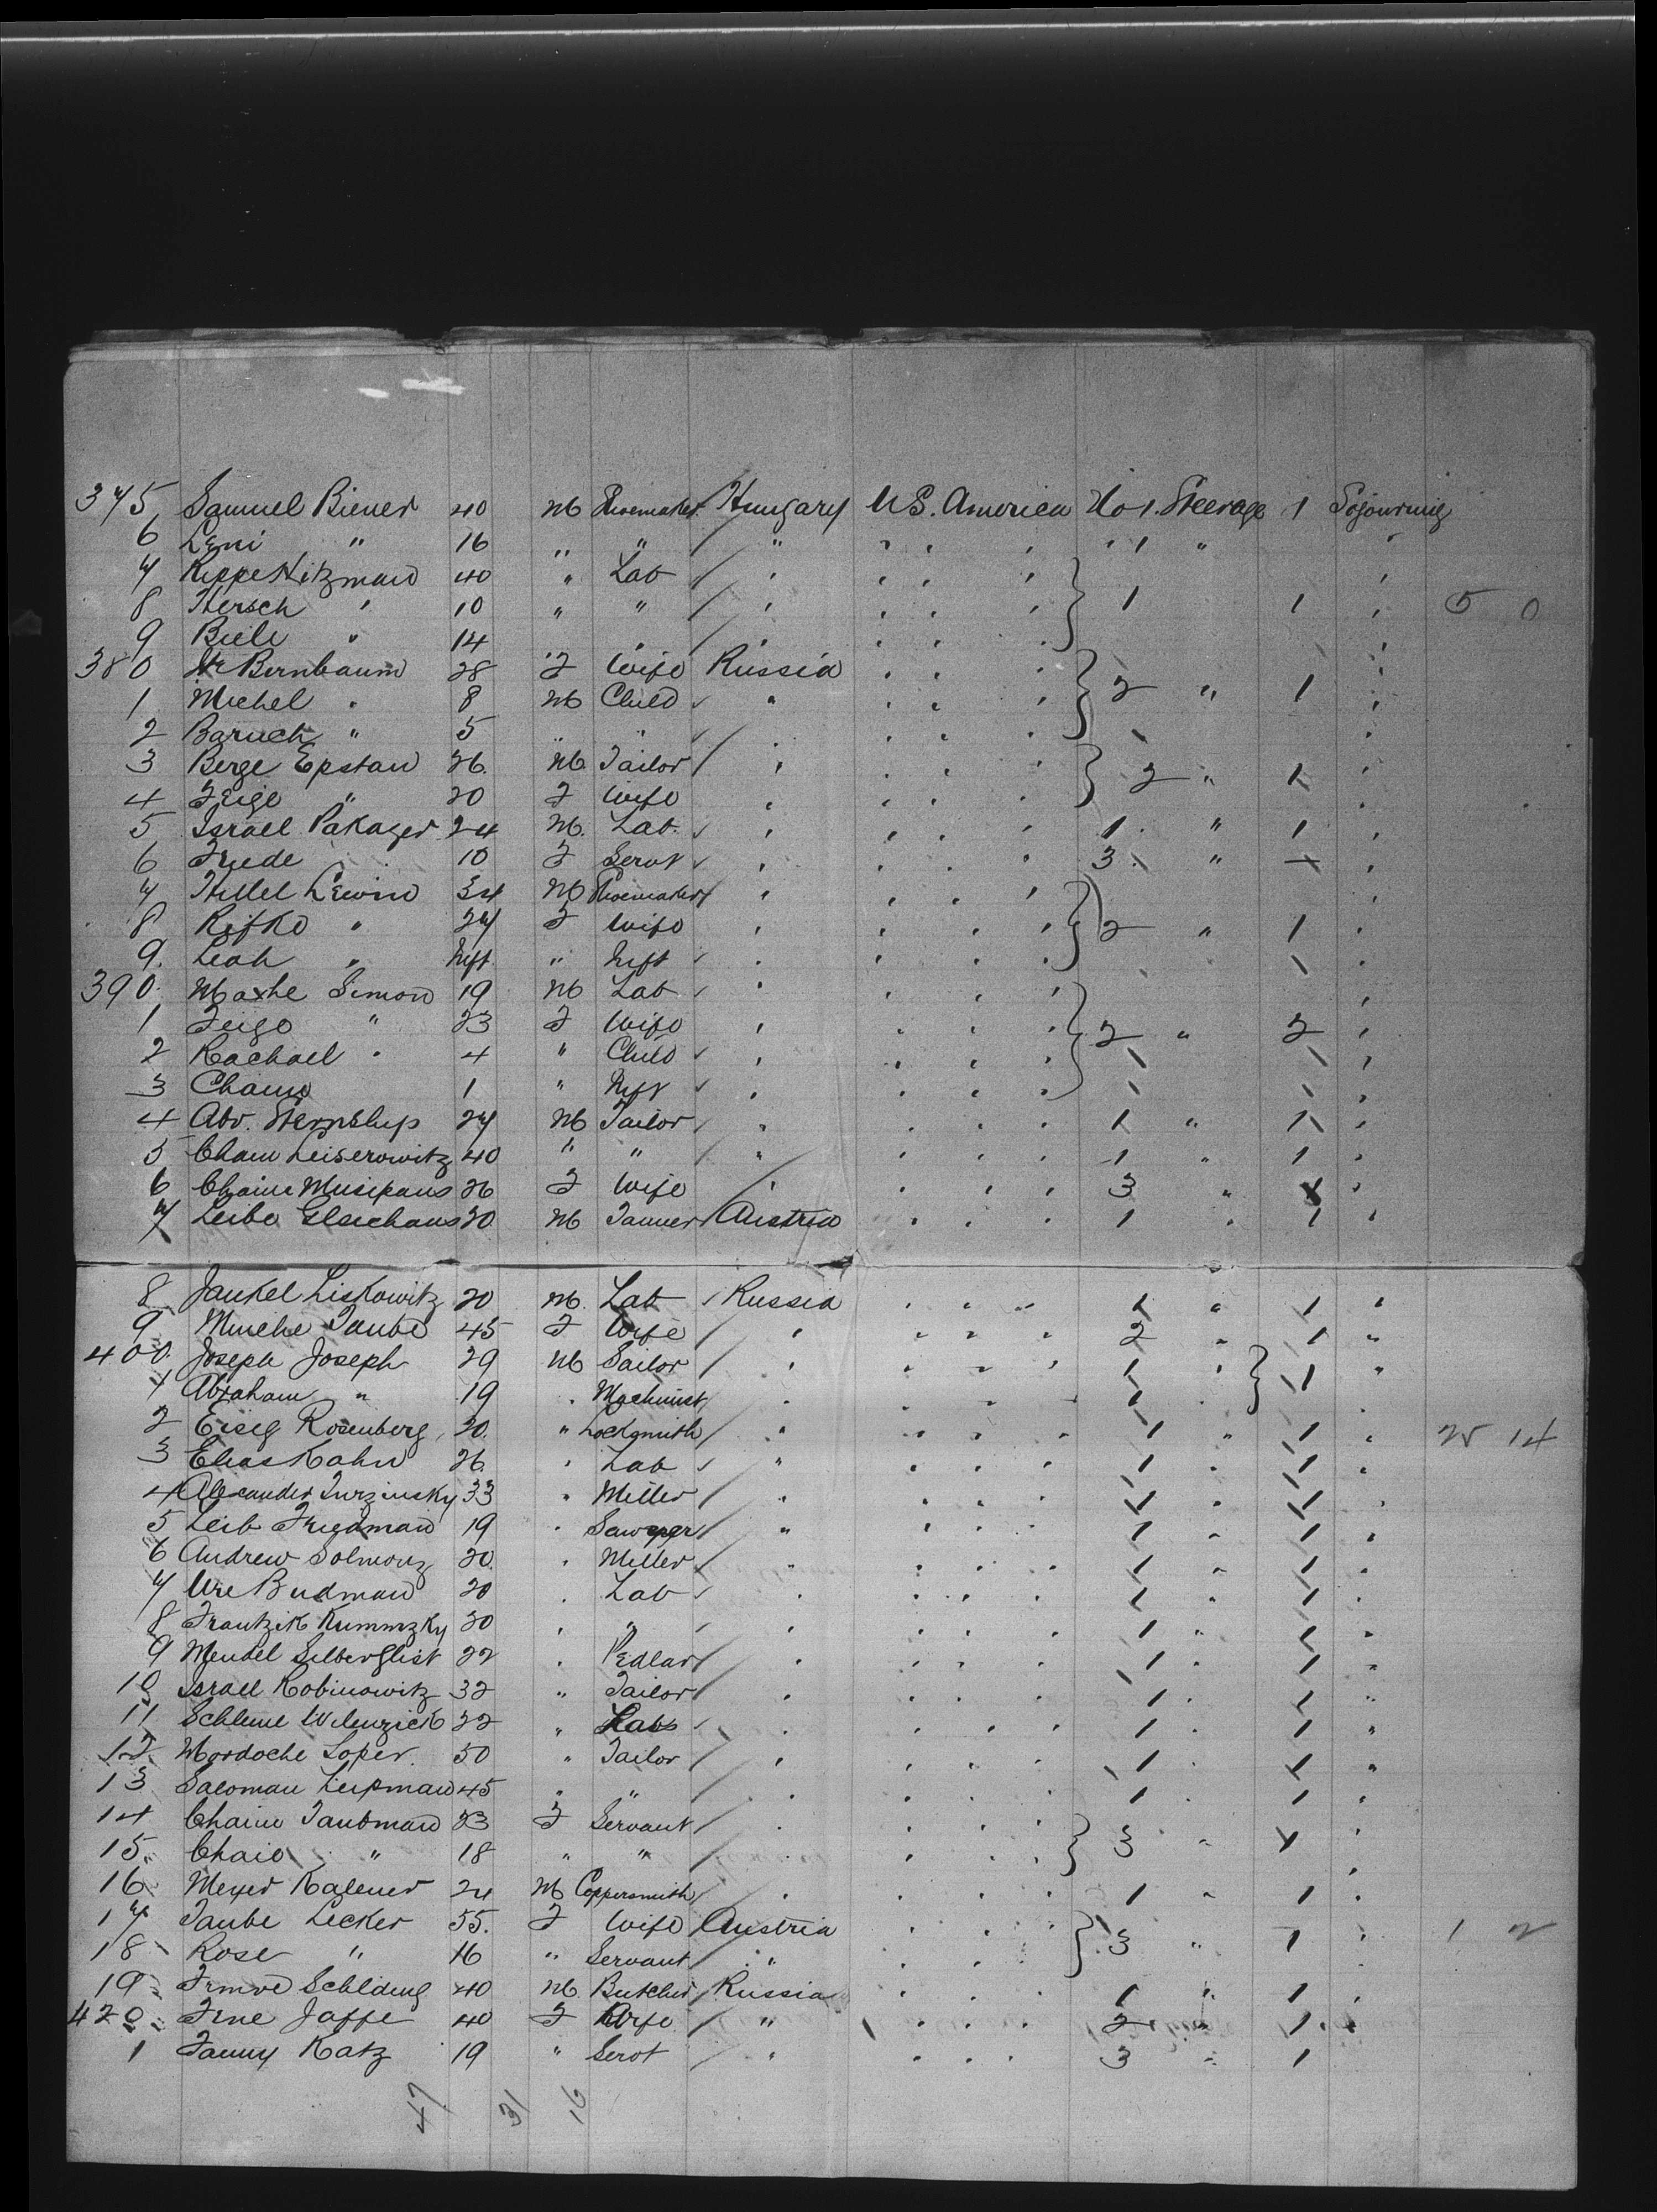 375 Samuel Biener 40 M Shoemaker Hungary U.S. America No 1. Steerage 1 Sojourning
6 Leni " 16 " " " " 1 "
7 Hitzman 40 " Lab
8 Hersch " 10 " " 1 1 5 0
9 Biele " 14 "
380 Birnbaum 28 F Wife Russia
1 Michel " 8 M Child " 2 " 1
2 Baruch " 5 " "
3 Berge Epstan 26 M Tailor 2 " 1
4 Feige " 20 F Wife
5 Israel Pakager 24 M. Lab. 1 " 1
6 Frede 10 F Servt 3 "
7 Hillel Lewin 34 M Shoemaker
8 Rifke " 27 F Wife 2 " 1
9. Leah " Inft. " Inft
390 Simon 19 M Lab
1 Feige " 23 F Wife 2 " 2
2 Rachael " 4 " Child
3 Chaim 1 " Inft
4 Abr. Sternship 27 M Tailor 1 " 1
5 Chaim Leiserowitz 40 " " " 1 " 1
6 Chaine Musipans 26 F Wife 3 "
7 Leibe 20 M Tanner Austria 1 " 1
8 Jankel Liskowitz 20 M. Lab Russia 1 " 1 "
9 Minche Taube 45 F Wife 2 " 1 "
400. Joseph Joseph 29 M Sailor 1 " 1 "
1 Abraham " 19 " Machinist 1
2 Eiseg Rosenberg 20. " Locksmith 1 " 1 " 25 14
3 Elias Kahn 26. " Lab " 1 " 1
4 Alexander Turzinsky 33 " Miller 1 1
5 Leib Friedman 19 " Sawyer " 1 " 1
6 Andrew Solmonz 20. " Miller 1 " 1
7 Ure Budman 20 " Lab 1 " 1
8 Frantzik Kummzky 30 " " 1 " 1
9 Mendel 22 " Pedlar 1 " 1
10 Israel Robinowitz 32 " Tailor 1 " 1
11 Schleme 22 " Lab 1 " 1
12 Mordoche Loper 50 " Tailor 1 " 1
13 Saloman Leipman 45 " " 1 1
14 Chaim Taubman 23 F Servant
15. Chaie " 18 " " 3 " 1
16 Meyer Kalener 24 M Coppersmith 1 " 1
17 Taube Lecker 55. F Wife Austria 3 " 1 1 2
18 Rose " 16 " Servant "
19 Schlding 40 M Butcher Russia 1 " 1
420 Jaffe 40 F Wife " 2 " 1
1 Fanny Katz 19 " Servt " 3 " 1
47 31 16